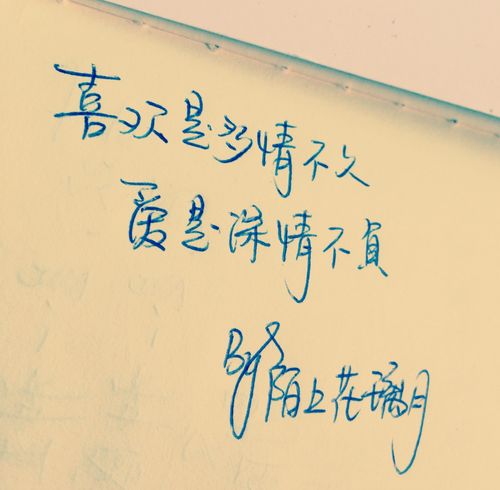 喜欢是多情不久
爱是深情不負
By 陌上花璃月